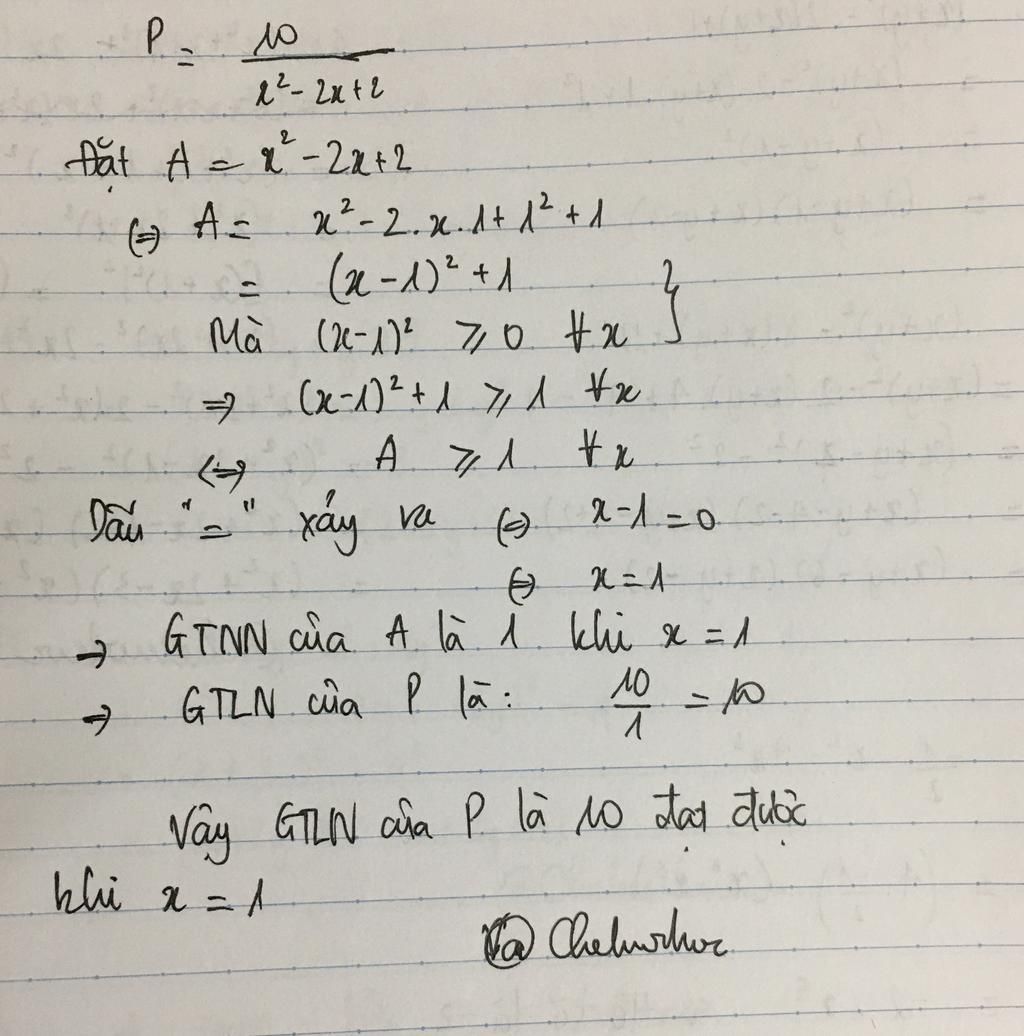 P = 10 / (x² - 2x + 2)
Đặt A = x² - 2x + 2
(=) A = x² - 2.x.1 + 1² + 1
= (x - 1)² + 1 }
Mà (x-1)² ⩾ 0 ∀x
=> (x-1)² + 1 ⩾ 1 ∀x
<=> A ⩾ 1 ∀x
Dấu "=" xảy ra (=) x-1 = 0
(=) x = 1
→ GTNN của A là 1 khi x = 1
→ GTLN của P là: 10/1 = 10
Vậy GTLN của P là 10 đạt được
khi x = 1